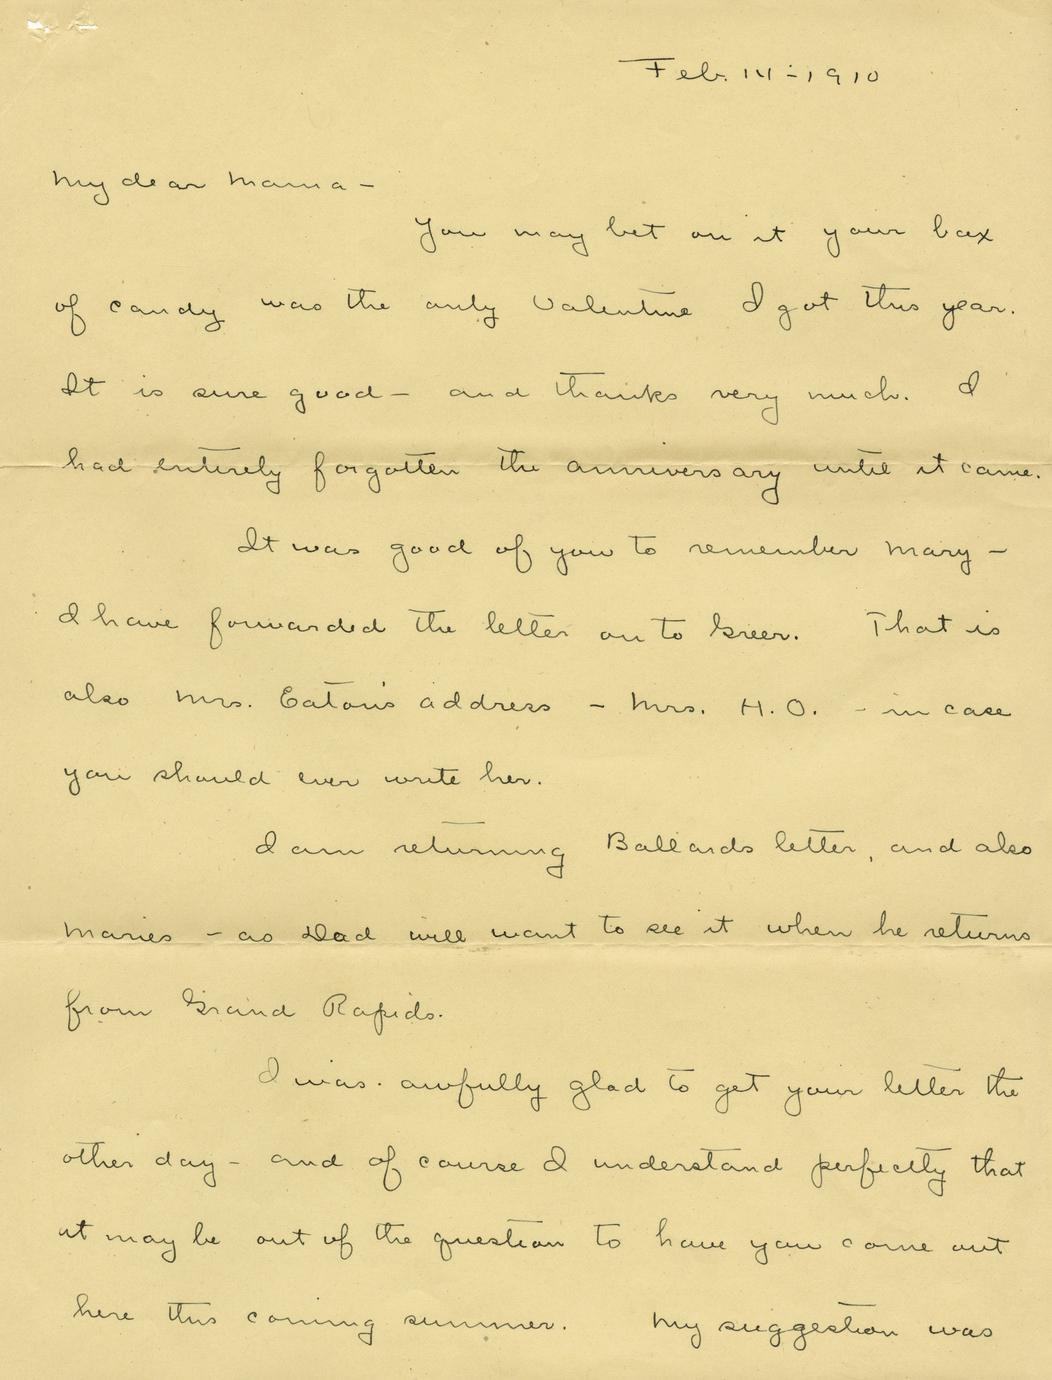 Feb. 14 - 1910
My dear Mama -
You may bet on it your box
of candy was the only Valentine I got this year.
It is sure good - and thanks very much. I
had entirely forgotten the anniversary until it came.
It was good of you to remember Mary -
I have forwarded the letter on to Greer. That is
also Mrs. Eaton's address - Mrs. H. O. - in case
you should ever write her.
I am returning Ballards letter, and also
Maries - as Dad will want to see it when he returns
from Grand Rapids.
I was awfully glad to get your letter the
other day - and of course I understand perfectly that
it may be out of the question to have you come out
here this coming summer. My suggestion was